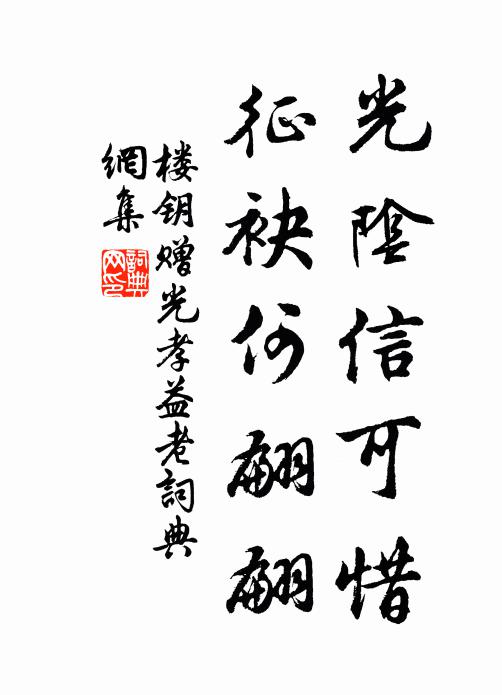 光陰信可惜
征袂何翩翩
楼钥赠光孝益老詞典
網集
詞典
网印